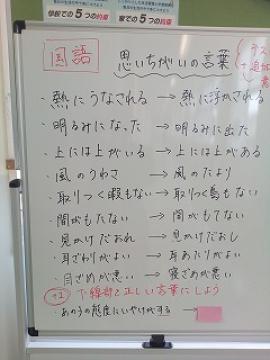 学校での5つの約束 家での5つの約束
国語 思いちがいの言葉
・熱にうなされる → 熱に浮かされる
・明るみになった → 明るみに出た
・上には上がいる → 上には上がある
・風のうわさ → 風のたより
・取りつく暇もない → 取りつく島もない
・間がもたない → 間がもてない
・見かけだおれ → 見かけだおし
・耳ざわりがよい → 耳あたりがよい
・目ざめが悪い → 寝ざめが悪い
下線部を正しい言葉にしよう
・あの子の態度にいやけがする →